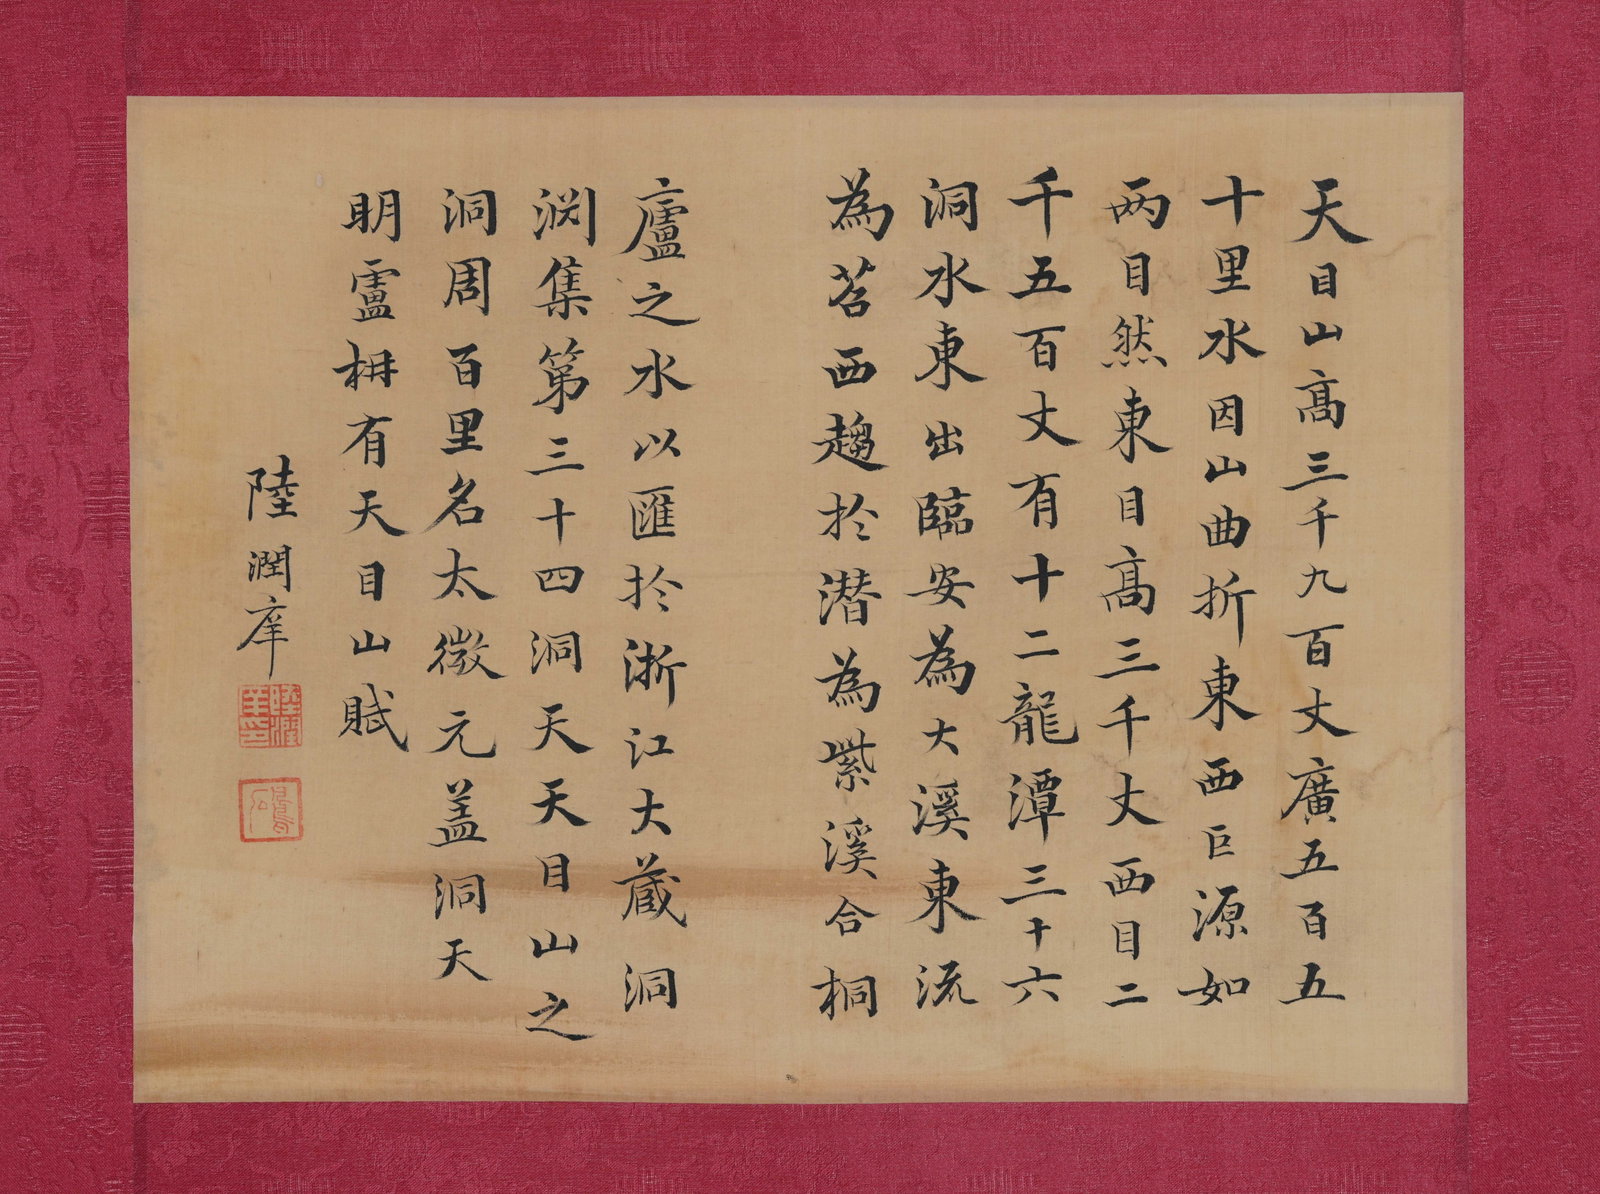 天目山高三千九百丈廣五百五
十里水因山曲折東西巨源如
兩目然東目高三千丈西目二
千五百丈有十二龍潭三十六
洞水東出臨安為大溪東流
為苕西趨於潛為紫溪合桐
廬之水以匯於浙江大藏洞
淵集第三十四洞天天目山之
洞周百里名太微元蓋洞天
明盧柟有天目山賦
陸潤庠
陸潤庠印